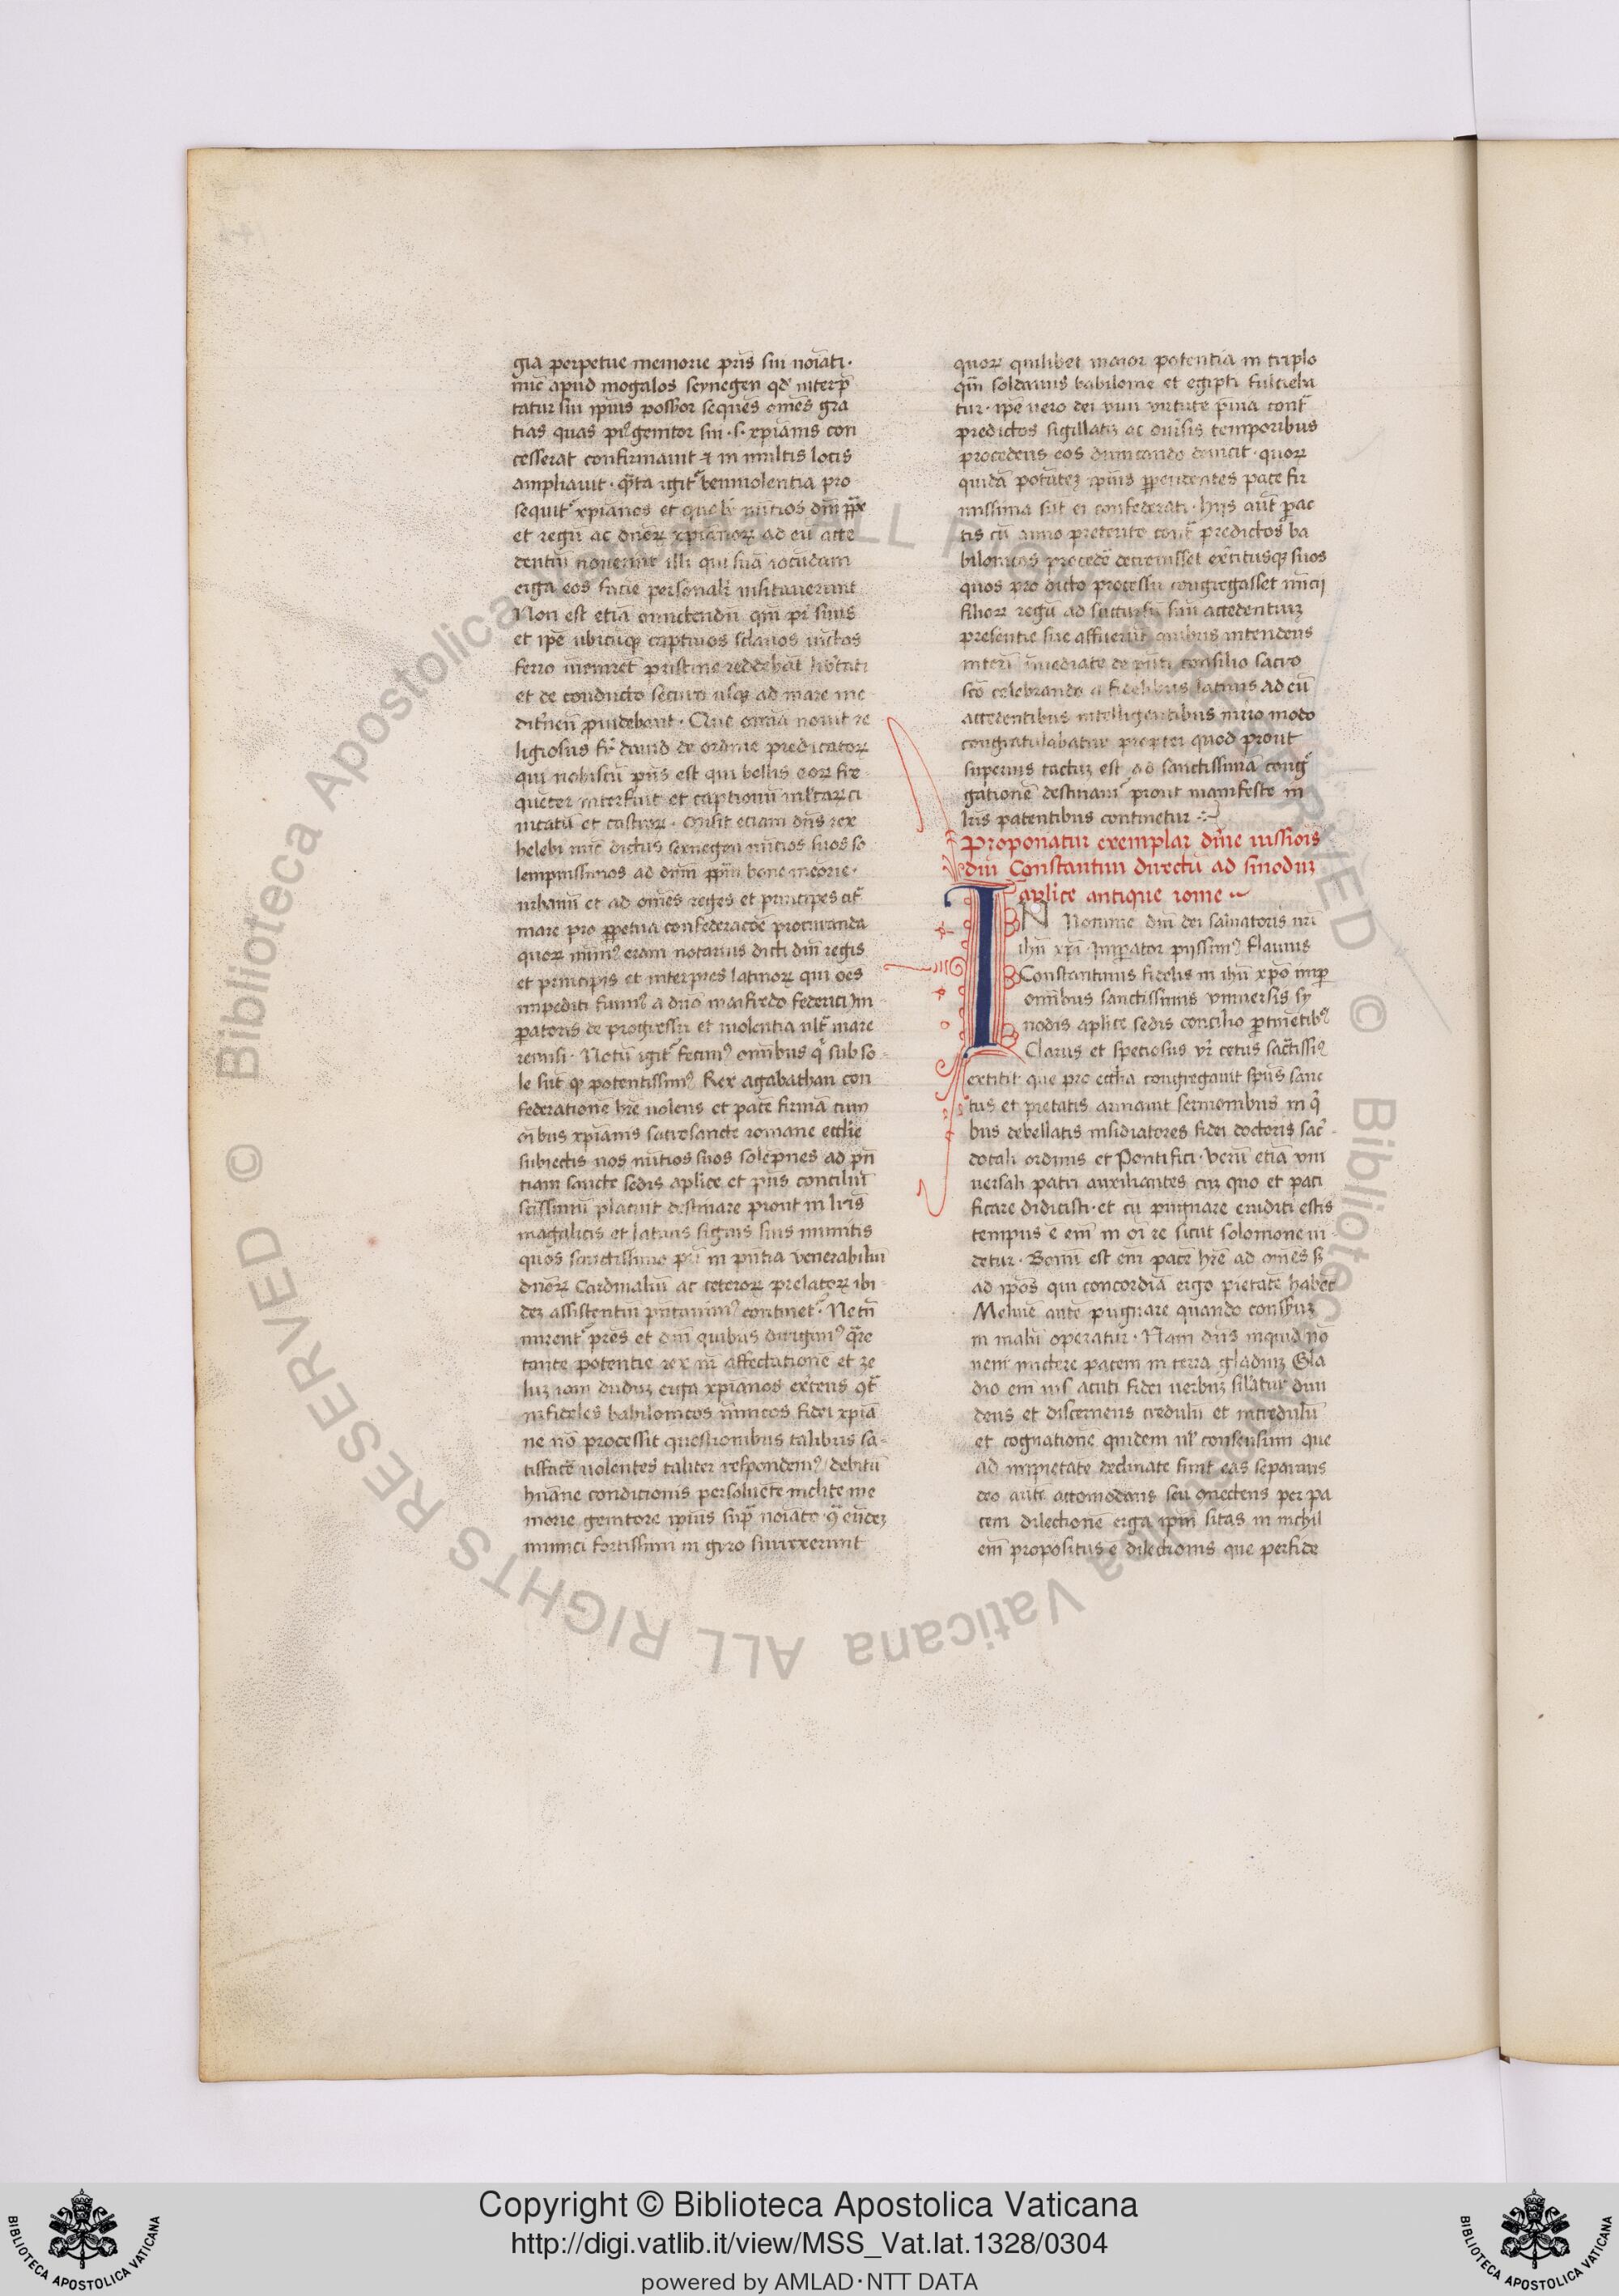 gia perpetue memorie pris sui noiati ·
nuc apud mogalos seynegen qd' interp
tatur sui ipius possor seques omes gra
tias quas pr genitor sui · s · xpianis con
cesserat confirmauit et in multis locis
ampliauit · qta igit beniuolentia pro
sequit xpianos et quelr nutios dni ppe
et regu ac dnor xpianor ad eu acce
dentiu nouerunt illi qui sua iocudam
erga eos facie personalr uisitauerunt
Non est etia omictendu qm pr suus
et ipe ubicuq captiuos sclauos uictos
ferro inueniret pristine reddebat libtati
et de conducto securi usq ad mare me
ditneu puidebant · Que omia nouit re
ligiosus fr dauid de ordine predicator
qui nobiscu pns est qui bellis eor fre
queter interfuit et captionu
uitatu et castror · misit etiam dns rex
helebi nuc dictus seynegen nutios suos so
lempnissimos ad dnm ppm bone meorie ·
urbanu et ad omes reges et principes cit
mare pro ppetua confederacoe procuranda
quor nim eram notarius dicti dni regis
et principis et interpres latinor qui oes
impediti fuim a dno maifredo federici im
patoris de progressu et uiolentia ult mare
remisi · Notu igit fecim omibus q sub so
le sut q potentissim Rex agabathan con
federatione hre uolens et pace firma cum
oibus xpianis sacrosancte romane ecclie
subiectis nos nutios suos solepnes ad pn
tiam sancte sedis aplice et pns conciliu
scissimu placuit destinare prout in lris
magalicis et latinis signis suis munitis
quos sanctissimo pri in pntia venerabiliu
dnor Cardinaliu ac ceteror prelator ibi
dez assistentiu pntauim continet · Ne tn
mirent pres et dni quibus dirigim qre
tante potentie rex in affectatione et ze
luz iam duduz erga xpianos exces qt
infideles babilonicos inimicos fidei xpia
ne no processit questionibus talibus sa
tisface uolentes taliter respondem debitu
huane conditionis persoluete inclite me
morie genitore ipius sup noiato q eudez
inimici fortissimi in gyro surrexerunt
quor quilibet maior potentia in triplo
qm soldanus babilonie et egipti fulcieba
tur · ipe uero dei uiui uirtute pma cont
predictos sigillatiz ac diuisis temporibus
procedens eos dimicando deuicit · quor
quida potentez ipius ppendentes pace fir
missima sut ei confederati · hijs aut pac
tis cu anno preterito cont predictos ba
bilonicos procede decreuisset exercitusq suos
quos pro dicto processu congregasset nucij
filior regu ad succursu sui accedentiuz
presentie sue affuerut quibus intendens
interi imediate de pnti consilio sacro
sco celebrando a fidelibus latinis ad eu
accedentibus intelligentibus miro modo
congratulabatur propter quod prout
superius tactuz est ad sanctissima cong
gatione destinauit prout manifeste in
lris patentibus continetur
Proponatur exemplar diuine iussiois
diui Constantini directu ad sinoduz
aplice antique rome
IN Nomine dni dei saluatoris nri
ihu xpi · Imperator pijssim Flauius
Constantinus fidelis in ihu xpo imp
omibus sanctissimis vniuersis sy
nodis aplice sedis concilio ptinetib
Clarus et speciosus vr cetus sactissi
extitit que pro ecclia congregauit spus sanc
tus et pietatis armauit sermonibus in q
bus debellatis insidiatores fidei doctoris sac
dotali ordinis et Pontifici · veru etia vni
uersali patri auxiliantes cuz quo et paci
ficare didicisti · et cu pugnare eruditi estis
tempus e em in oi re sicut solomone ui
detur · Bonu est em pace hre ad omes s
ad ipos qui concordia ergo pietate habet
Meliue aute pugnare quando consijuz
in malu operatur · Nam dns inquid no
ueni mictere pacem in terra gladiuz Gla
dio em uisi acuti fidei uerbuz silatur diui
dens et discernens credulu et incredulu
et cognatione quidem ul consensum que
ad impietate declinate sunt eas separans
deo aute accomodans seu onectens per pa
cem dilectione erga ipm sitas in nichil
em propositus e dilectionis que perfide
© Biblioteca Apostolica Vaticana ALL RIGHTS RESERVED
© Biblioteca Apostolica Vaticana ALL RIGHTS RESERVED
Copyright © Biblioteca Apostolica Vaticana
http://digi.vatlib.it/view/MSS_Vat.lat.1328/0304
powered by AMLAD·NTT DATA
BIBLIOTECA APOSTOLICA VATICANA
BIBLIOTECA APOSTOLICA VATICANA